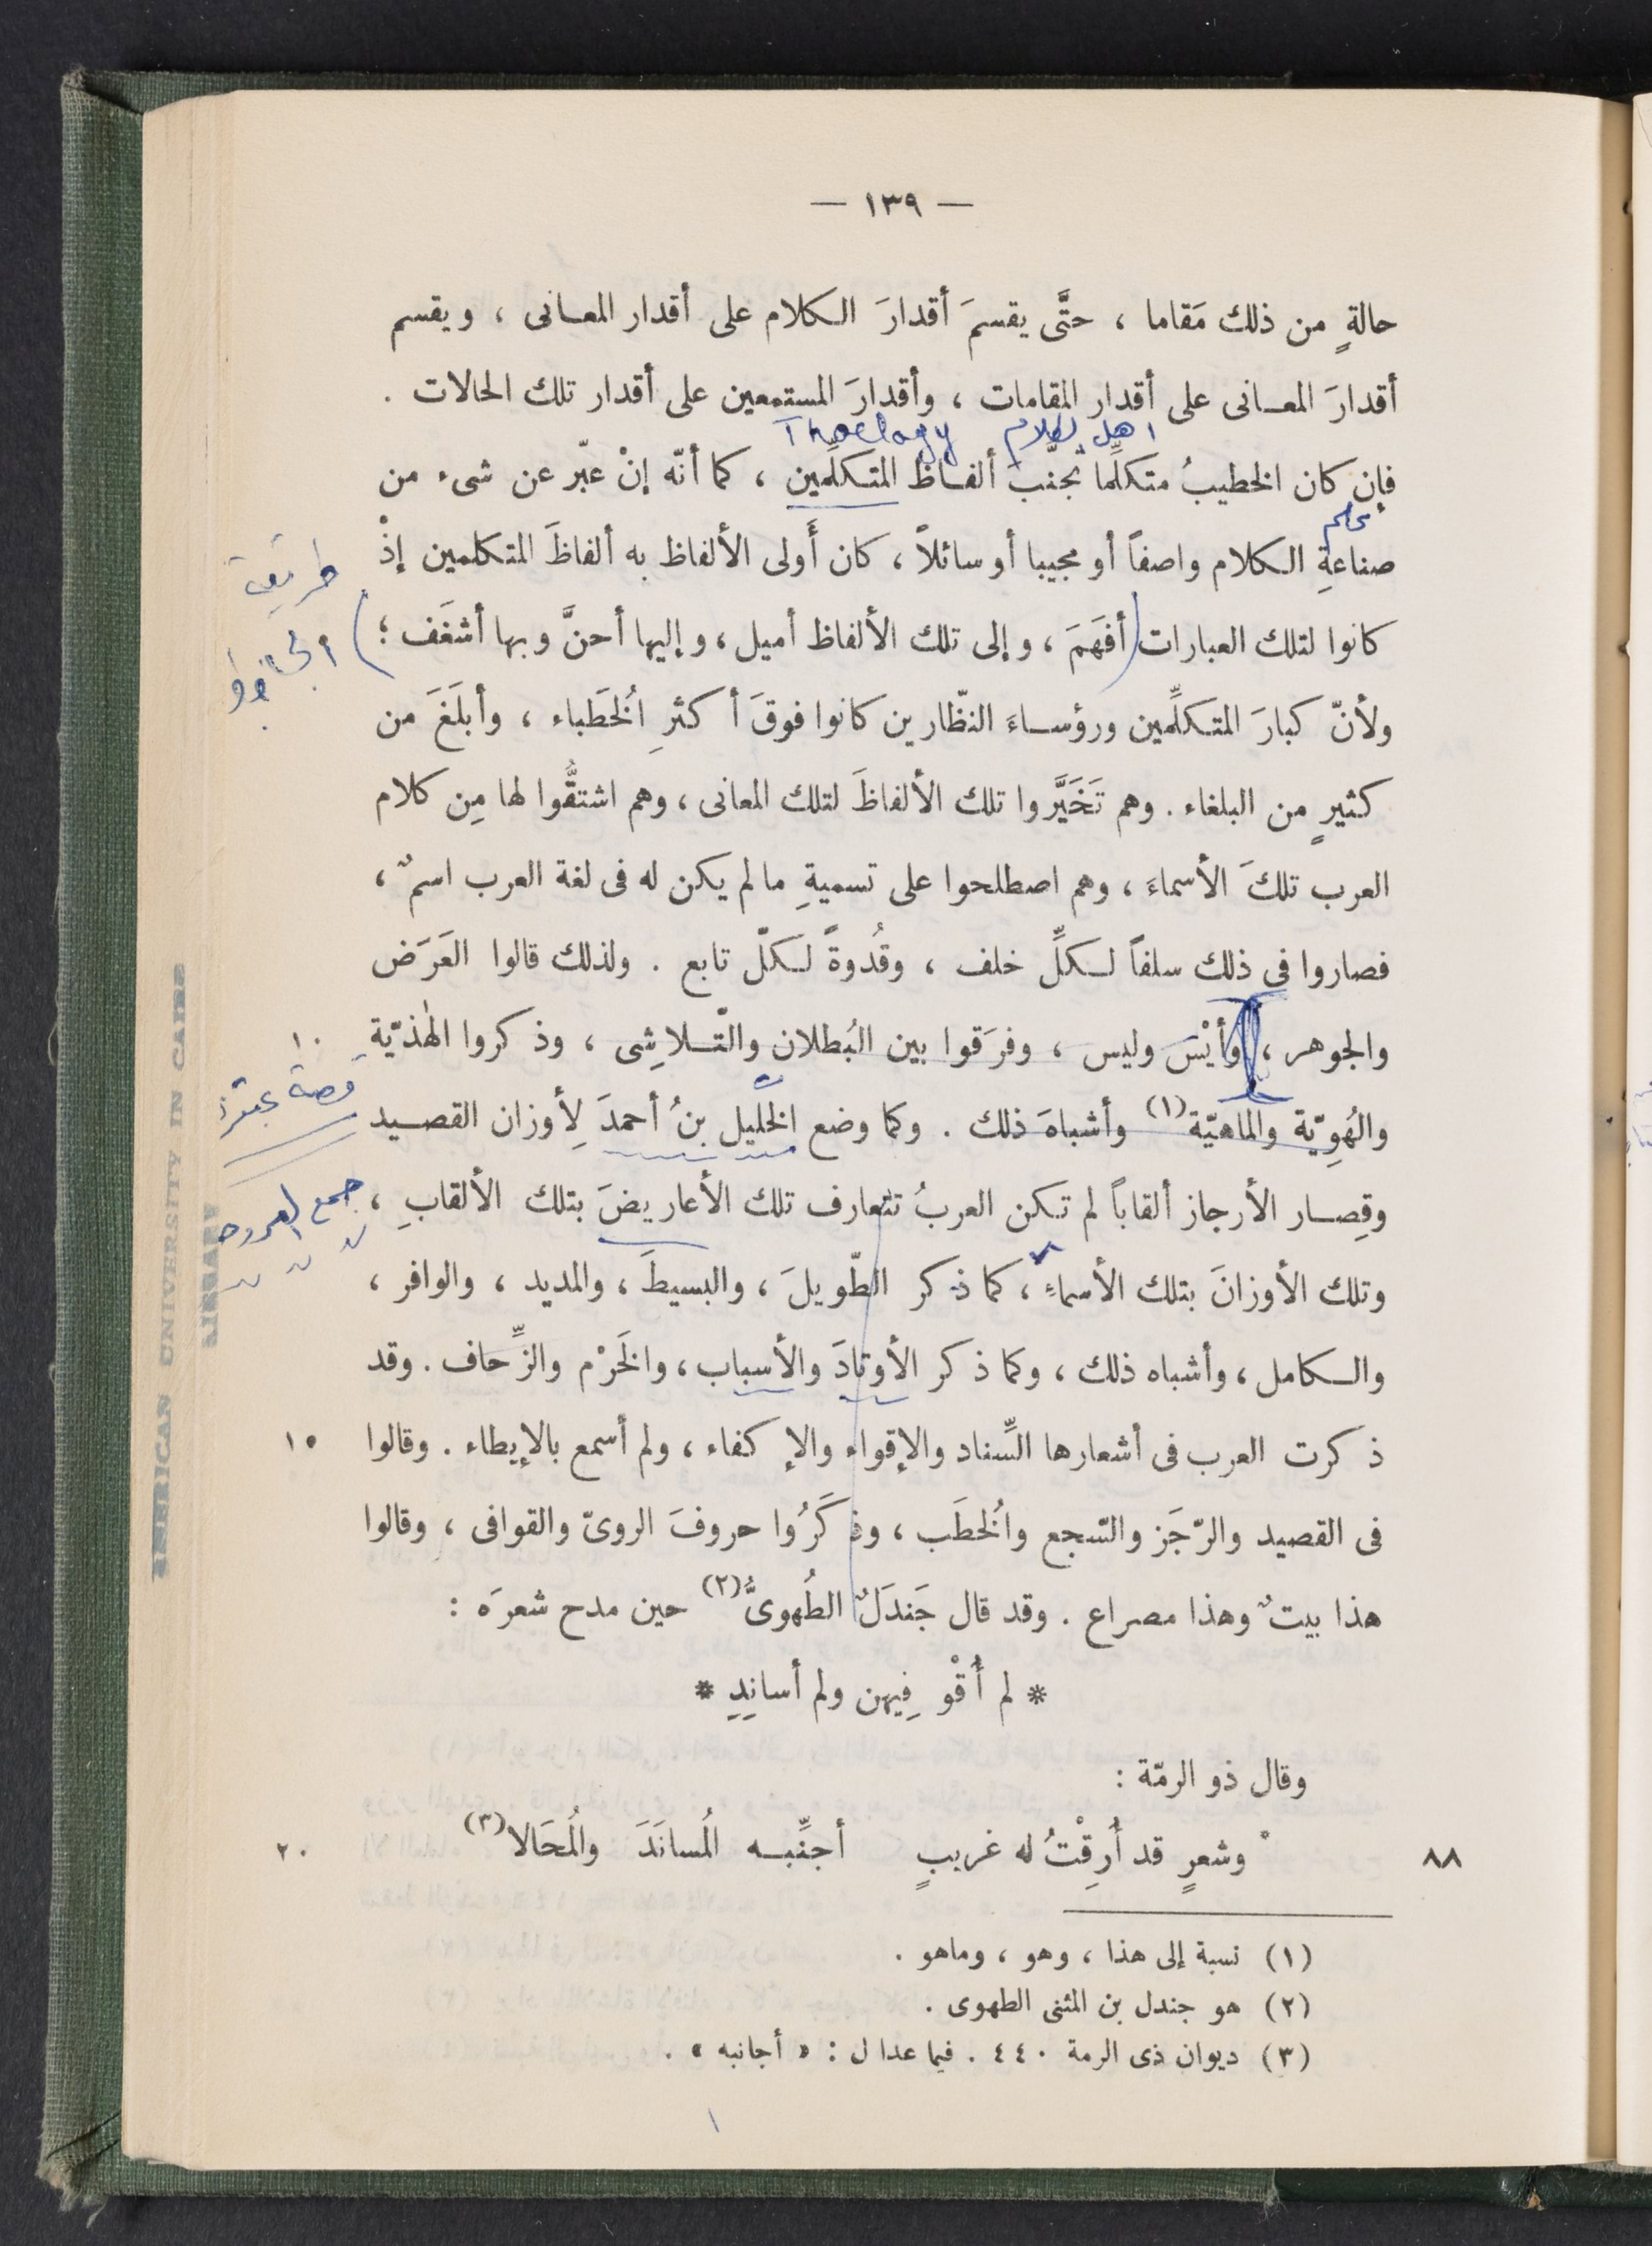 — ١٣٩ —
حالةٍ من ذلك مَقاما ، حتَّى يقسمَ أقدارَ الكلام على أقدار المعانى ، ويقسم
أقدارَ المعانى على أقدار المقامات ، وأقدارَ المستمعين على أقدار تلك الحالات .
اهل الكلام Thoelogy
فإن كان الخطيبُ متكلِّما تجنَّب ألفاظ المتكلِّمين ، كما أنّه إنْ عبّر عن شىء من
علم
صناعةِ الكلام واصفاً أو مجيبا أو سائلاً ، كان أَولى الألفاظ به ألفاظَ المتكلمين إذْ
طريقة
كانوا لتلك العبارات أفهَمَ ، وإلى تلك الألفاظ أميل ، وإليها أحنَّ وبها أشغَف ؛
الجاحظ
ولأنّ كبارَ المتكلِّمين ورؤساءَ النظّارين كانوا فوقَ أكثرِ الخُطَباء ، وأبلَغَ من
كثيرٍ من البلغاء . وهم تَخَيَّروا تلك الألفاظَ لتلك المعانى ، وهم اشتقُّوا لها مِن كلام
العرب تلكَ الأسماءَ ، وهم اصطلحوا على تسميةِ مالم يكن له فى لغة العرب اسمٌ ،
فصاروا فى ذلك سلفاً لكلِّ خلف ، وقُدوةً لكلّ تابع . ولذلك قالوا العَرَض
والجوهر ، وأيْسَ وليس ، وفرَقوا بين البُطلان والتّلاشِى ، وذكروا الهٰذيّةِ ١٠
والهُوِيّة والماهيّة (١) وأشباهَ ذلك . وكما وضع الخليل بنُ أحمدَ لِأوزان القصيد
وقِصار الأرجاز ألقاباً لم تكن العربُ تتعارف تلك الأعاريضَ بتلك الألقابِ ،
جمع العروض
وتلك الأوزانَ بتلك الأسماءِ ، كما ذكر الطّويلَ ، والبسيطَ ، والمديد ، والوافر ،
والكامل ، وأشباه ذلك ، وكما ذكر الأوتادَ والأسباب ، والخَرْم والزِّحاف . وقد
ذكرت العرب فى أشعارها السِّناد والإقواء والإكفاء ، ولم أسمع بالإيطاء . وقالوا ١٥
فى القصيد والرّجَز والسّجع والخُطَب ، وذكَرُوا حروفَ الروىّ والقوافى ، وقالوا
هذا بيتٌ وهذا مصراع . وقد قال جَندَلٌ الطُهوىُّ (٢) حين مدح شعرَه :
* لم أُقْوِ فِيهن ولم أسانِدِ *
وقال ذو الرمّة :
٨٨ * وشعرٍ قد أَرِقْتُ له غريبٍ أجنِّبه المُسانَدَ والمُحَالا (٣) ٢٠
(١) نسبة إلى هذا ، وهو ، وماهو .
(٢) هو جندل بن المثنى الطهوى .
(٣) ديوان ذى الرمة ٤٤٠ . فيما عدا ل : « أجانبه » .
AMERICAN UNIVERSITY IN CAIRO
LIBRARY